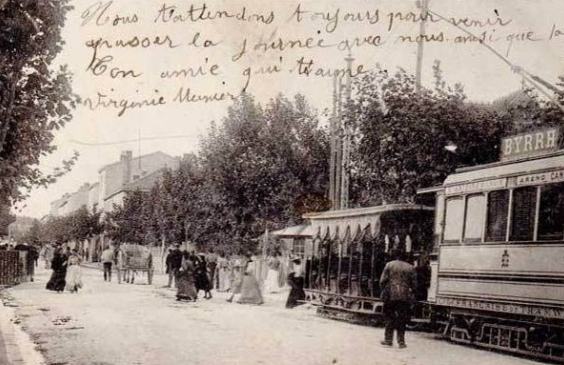 Nous t'attendons toujours pour venir
passer la journée avec nous. ainsi que la
Ton amie qui t'aime
Virginie Munier
BYRRH
GRAND CAN
FRANÇAISE DE TRAMW